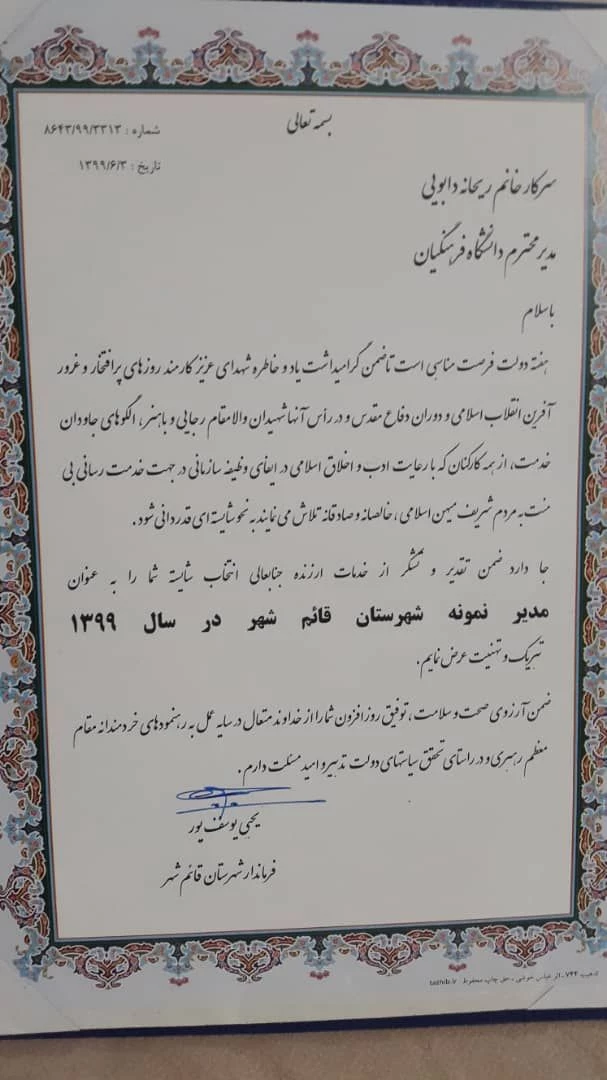 بسمه تعالی
شماره : ۸۶۴۳/۹۹/۳۳۱۳
تاریخ : ۱۳۹۹/۶/۳
سرکار خانم ریحانه دابویی
مدیر محترم دانشگاه فرهنگیان
با سلام
هفته دولت فرصت مناسبی است تا ضمن گرامیداشت یاد و خاطره شهدای عزیز کارمند روزهای پرافتخار و غرور
آفرین انقلاب اسلامی و دوران دفاع مقدس و در رأس آنها شهیدان والامقام رجایی و باهنر، الگوهای جاودان
خدمت، از همه کارکنان که با رعایت ادب و اخلاق اسلامی در ایفای وظیفه سازمانی در جهت خدمت رسانی بی
منت به مردم شریف میهن اسلامی، خالصانه و صادقانه تلاش می نمایند به نحو شایسته ای قدردانی شود.
جا دارد ضمن تقدیر و تشکر از خدمات ارزنده جنابعالی انتخاب شایسته شما را به عنوان
مدیر نمونه شهرستان قائم شهر در سال ۱۳۹۹
تبریک و تهنیت عرض نمایم.
ضمن آرزوی صحت و سلامت، توفیق روزافزون شما را از خداوند متعال در سایه عمل به رهنمودهای خردمندانه مقام
معظم رهبری و در راستای تحقق سیاستهای دولت تدبیر و امید مسئلت دارم.
یحیی یوسف پور
فرماندار شهرستان قائم شهر
تذهیب ۷۴۴ ـ اثر عباس ـ حق چاپ محفوظ tazhib.ir